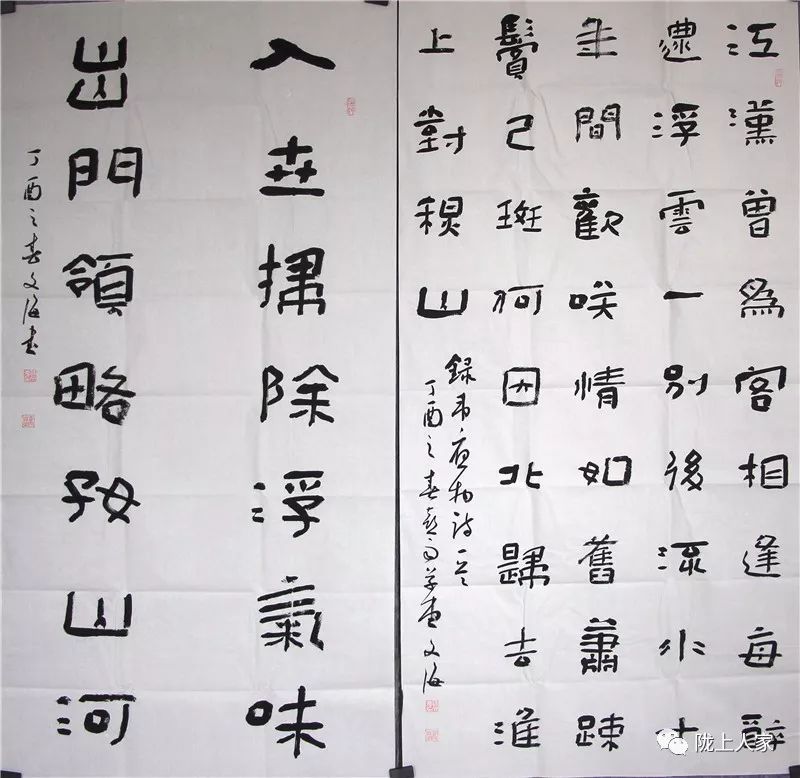 江漢曾爲客相逢每醉
還浮雲一別後流水十
年間歡咲情如舊蕭踈
鬢已斑何因北歸去淮
上對秋山
錄韋應物詩一首
丁酉之春喜雨草堂文海
入世掃除浮氣味
出門領略好山河
丁酉之春文海書
陇上人家